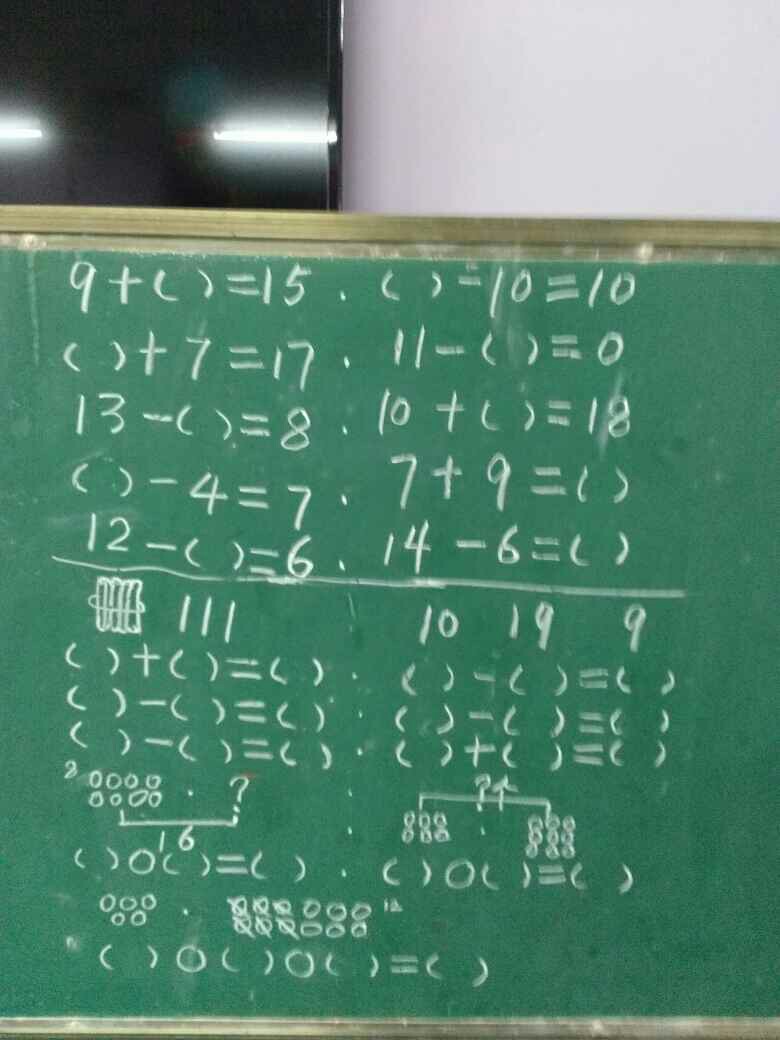 9+( )=15 . ( )-10=10
( )+7=17 . 11-( )=0
13-( )=8 . 10+( )=18
( )-4=7 . 7+9=( )
12-( )=6 . 14-6=( )
111 10 19 9
( )+( )=( ) . ( )-( )=( )
( )-( )=( ) . ( )-( )=( )
( )-( )=( ) . ( )+( )=( )
8 ? ?个
16
( )○( )=( ) . ( )○( )=( )
12
( )○( )○( )=( )